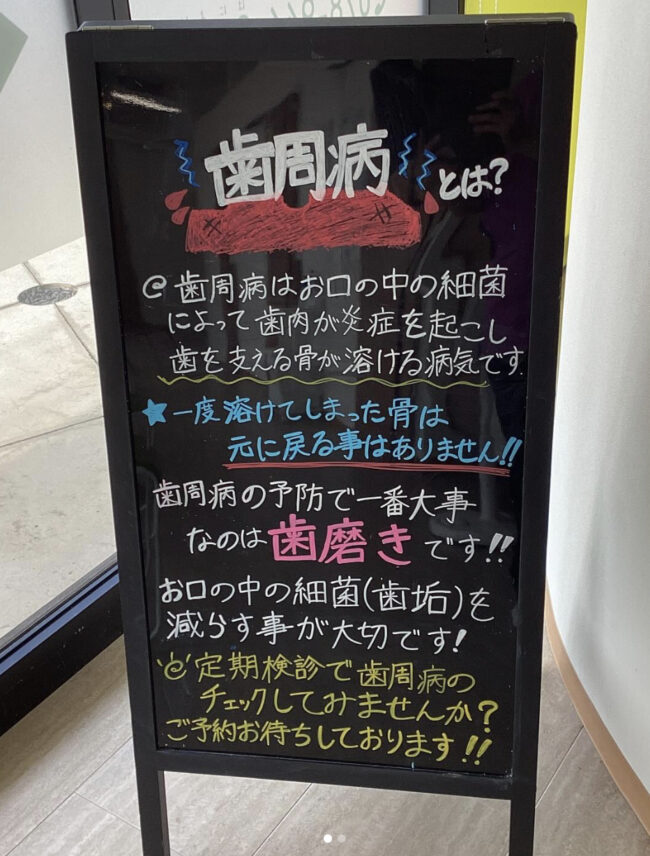 歯周病とは?
@歯周病はお口の中の細菌
によって歯肉が炎症を起こし
歯を支える骨が溶ける病気です
★一度溶けてしまった骨は
元に戻る事はありません!!
歯周病の予防で一番大事
なのは歯磨きです!!
お口の中の細菌(歯垢)を
減らす事が大切です!
定期検診で歯周病の
チェックしてみませんか?
ご予約お待ちしております!!